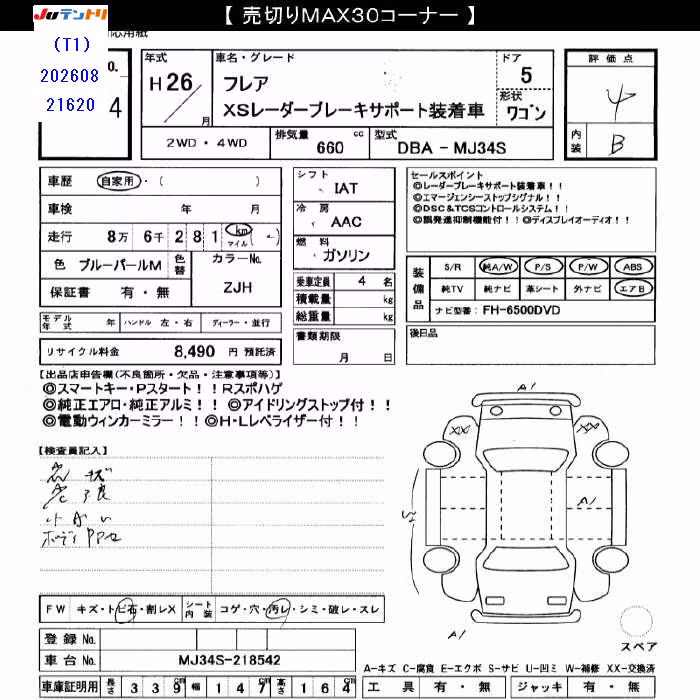 JUテントリ
【 売切りMAX30コーナー 】
(T1)
202608
21620
o.
4
年式
H26
月
車名・グレード
フレア
XSレーダーブレーキサポート装着車
ドア
5
形状
ワゴン
評価点
4
内装
B
2WD・4WD
排気量
660 cc
型式
DBA - MJ34S
車歴 自家用・( )
車検 年 月
走行 8万 6千 2 8 1 km マイル
色 ブルーパールM 色替
カラーNo.
ZJH
保証書 有・無
モデル年式 年 ハンドル 左・右 ディーラー・並行
リサイクル料金 8,490 円 預託済
シフト
IAT
冷房
AAC
燃料
ガソリン
乗車定員 4 名
積載量 kg
総重量 kg
書類期限
月 日
セールスポイント
◎レーダーブレーキサポート装着車!!
◎エマージェンシーストップシグナル!!
◎DSC&TCSコントロールシステム!!
◎誤発進抑制機能付!!◎ディスプレイオーディオ!!
装備品
S/R 純A/W P/S P/W ABS
純TV 純ナビ 革シート 外ナビ エアB
ナビ型番: FH-6500DVD
後日品
【出品店申告欄(不良箇所・欠品・注意事項等)】
◎スマートキー・Pスタート!!Rスポハゲ
◎純正エアロ・純正アルミ!! ◎アイドリングストップ付!!
◎電動ウィンカーミラー!!◎H・Lレベライザー付!!
【検査員記入】
A1
XX
XX
A1
A1
スペア
FW キズ・トビ石・割レX
シート内装 コゲ・穴・汚レ・シミ・破レ・スレ
登録 No.
車台 No. MJ34S-218542
車庫証明用 長さ 3 3 9 cm 幅 1 4 7 cm 高さ 1 6 4 cm
A-キズ C-腐食 E-エクボ S-サビ U-凹ミ W-補修 XX-交換済
工具 有・無 ジャッキ 有・無